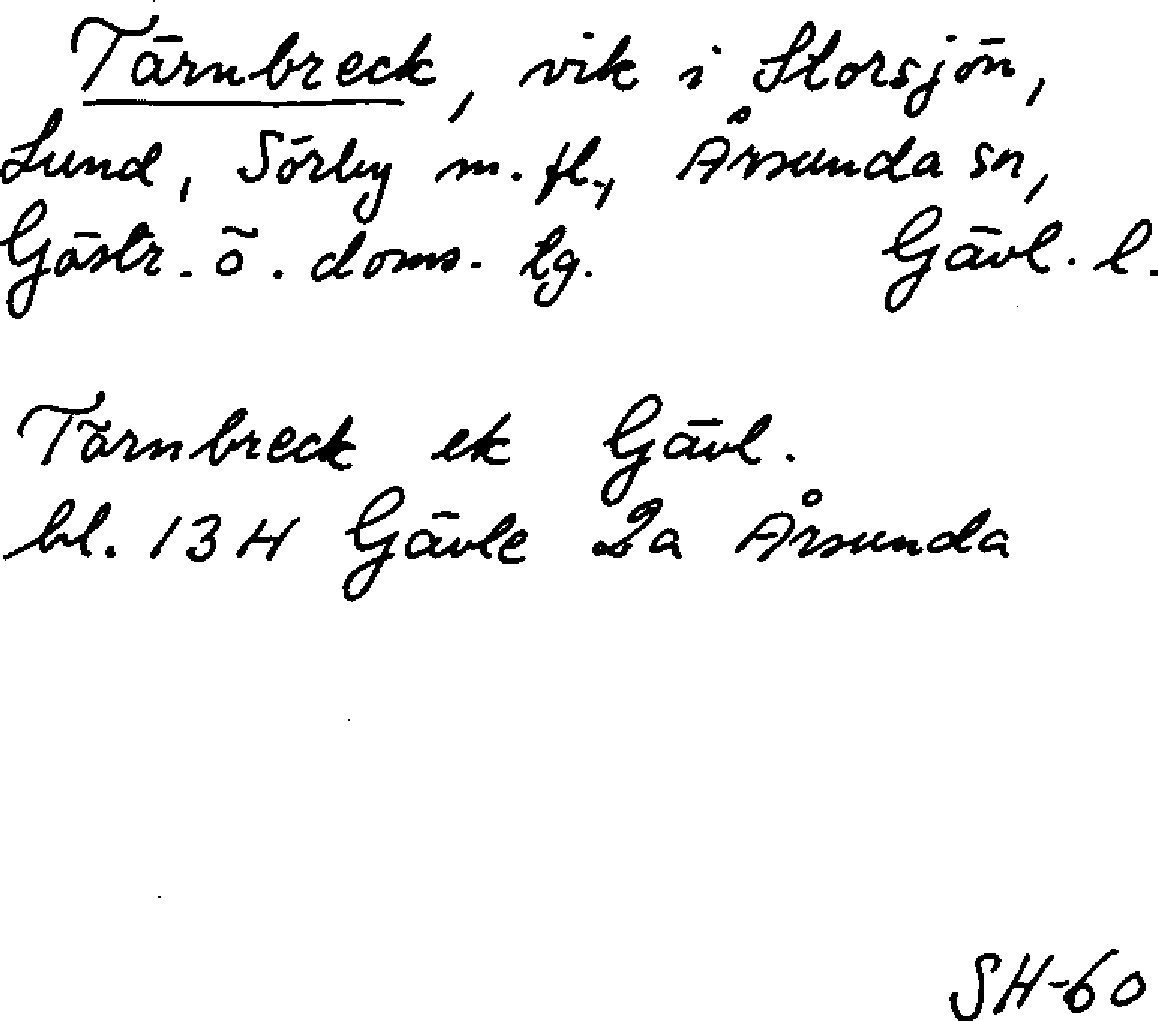 Tärnbreck, vik i Storsjön,
Lund, Sörby m. fl., Årsunda sn,
Gästr. ö. doms. lg. Gävl. l.
Tärnbreck ek Gävl.
bl. 13H Gävle 2a Årsunda
SH-60